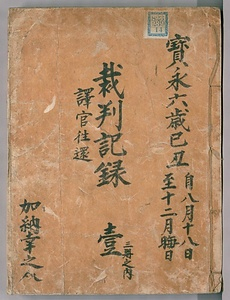 寶永六歳己丑
自八月十八日
至十二月晦日
裁判記録
壹
三冊之内
譯官往還
加納幸之助
14